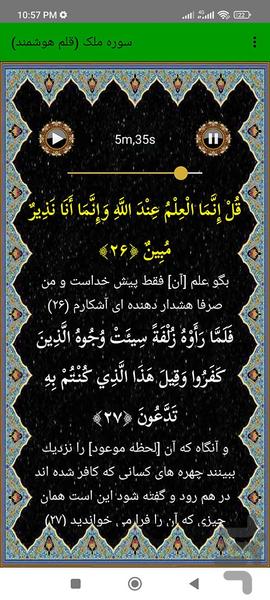 10:57 PM
سوره ملک (قلم هوشمند)
5m,35s
قُلْ إِنَّمَا الْعِلْمُ عِنْدَ اللَّهِ وَإِنَّمَا أَنَا نَذِيرٌ
مُبِينٌ ﴿۲۶﴾
بگو علم [آن] فقط پیش خداست و من
صرفا هشدار دهنده ای آشکارم (۲۶)
فَلَمَّا رَأَوْهُ زُلْفَةً سِيئَتْ وُجُوهُ الَّذِينَ
كَفَرُوا وَقِيلَ هَذَا الَّذِي كُنْتُمْ بِهِ
تَدَّعُونَ ﴿۲۷﴾
و آنگاه که آن [لحظه موعود] را نزدیک
ببینند چهره های کسانی که کافر شده اند
در هم رود و گفته شود این است همان
چیزی که آن را فرا می خواندید (۲۷)